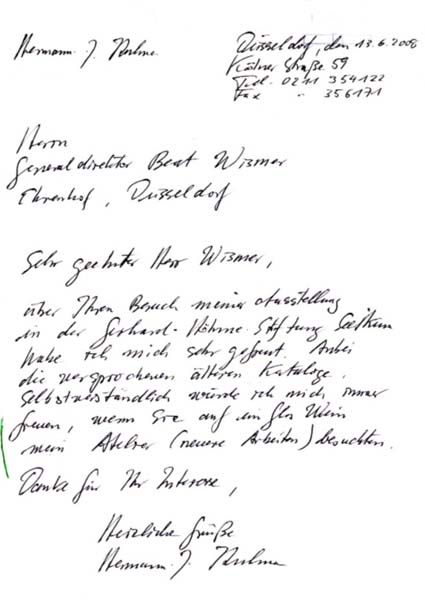 Hermann. J. Kuhna
Düsseldorf, den 13.6.2008
Kölner Straße 59
Tel. 0211 354122
Fax " 356171
Herrn
Generaldirektor Beat Wismer
Ehrenhof, Düsseldorf
Sehr geehrter Herr Wismer,
über Ihren Besuch meiner Ausstellung
in der Gerhard-Höhme-Stiftung
habe ich mich sehr gefreut. Anbei
die versprochenen älteren Kataloge.
Selbstverständlich würde ich mich immer
freuen, wenn Sie auf ein Glas Wein
mein Atelier (neuere Arbeiten) besuchten.
Danke für Ihr Interesse,
Herzliche Grüße
Hermann. J. Kuhna